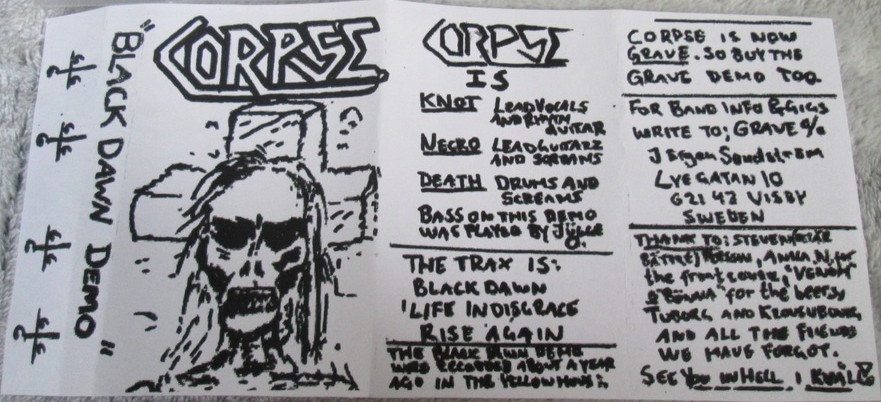 "BLACK DAWN DEMO"
CORPSE
CORPSE
IS
KNOT LEADVOCALS
AND RHYTM
GUITAR
NECRO LEADGUITARZ
AND SCREAMS
DEATH DRUMS AND
SCREAMS
BASS ON THIS DEMO
WAS PLAYED BY
THE TRAX IS:
BLACK DAWN
LIFE IN DISGRACE
RISE AGAIN
THE BLACK DAWN DEMO
WAS RECORDED ABOUT A YEAR
AGO IN THE YELLOW HOUSE
CORPSE IS NOW
GRAVE. SO BUY THE
GRAVE DEMO TOO.
FOR BAND INFO & GIGS
WRITE TO; GRAVE C/o
Jörgen Sandström
LYEGATAN 10
621 42 VISBY
SWEDEN
THANX TO: STEVEN
ANNA N. for
the front cover, "VENOM"
for the beers,
TUBORG AND KRONENBOURG
AND ALL THE FIENDS
WE HAVE FORGOT.
SEE YOU IN HELL,